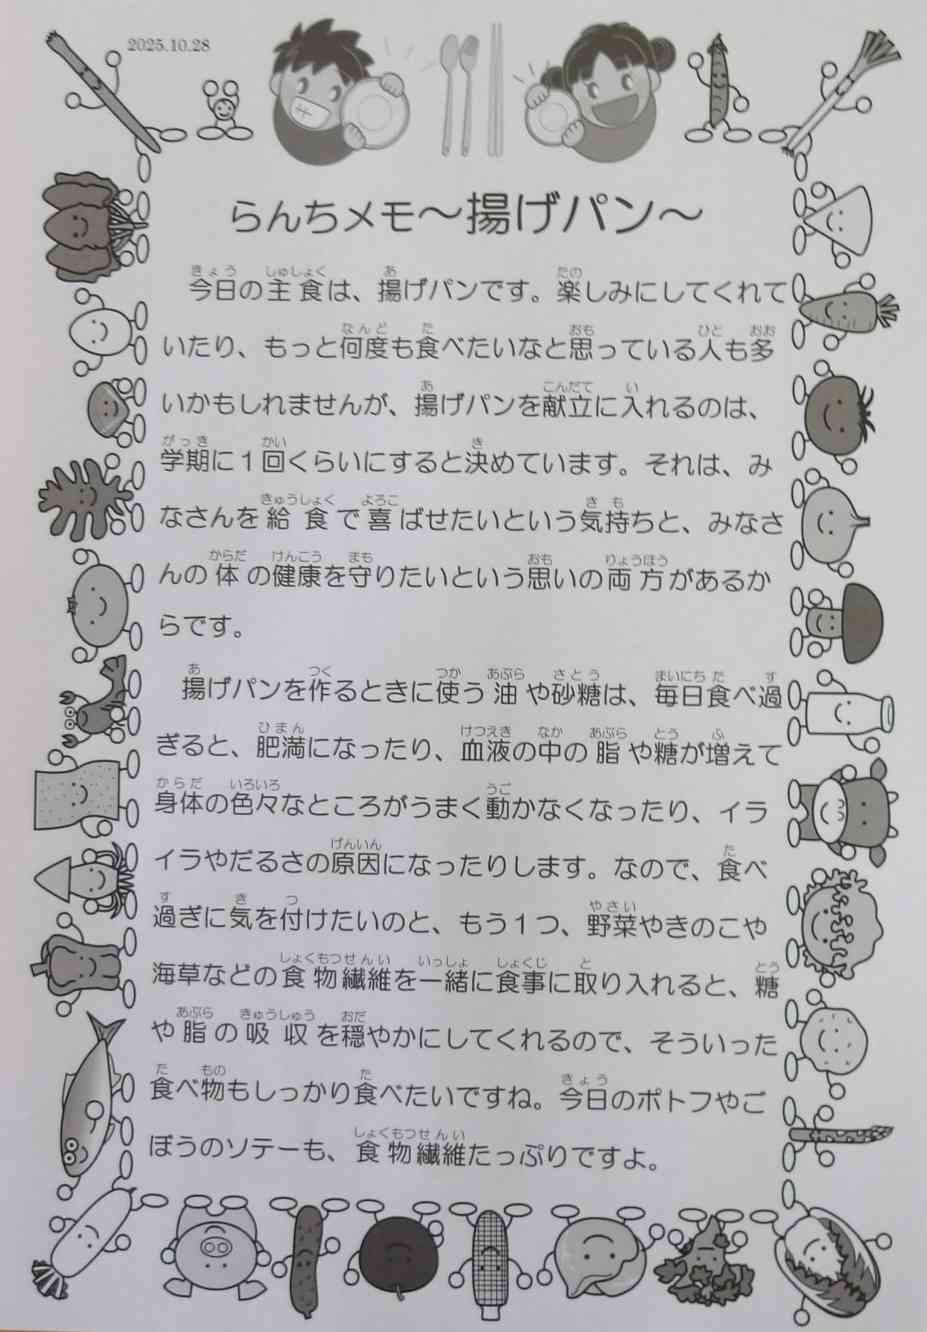 2025.10.28
らんちメモ～揚げパン～
今日の主食は、揚げパンです。楽しみにしてくれて
いたり、もっと何度も食べたいなと思っている人も多
いかもしれませんが、揚げパンを献立に入れるのは、
学期に１回くらいにすると決めています。それは、み
なさんを給食で喜ばせたいという気持ちと、みなさ
んの体の健康を守りたいという思いの両方があるか
らです。
揚げパンを作るときに使う油や砂糖は、毎日食べ過
ぎると、肥満になったり、血液の中の脂や糖が増えて
身体の色々なところがうまく動かなくなったり、イラ
イラやだるさの原因になったりします。なので、食べ
過ぎに気を付けたいのと、もう１つ、野菜やきのこや
海草などの食物繊維を一緒に食事に取り入れると、糖
や脂の吸収を穏やかにしてくれるので、そういった
食べ物もしっかり食べたいですね。今日のポトフやご
ぼうのソテーも、食物繊維たっぷりですよ。